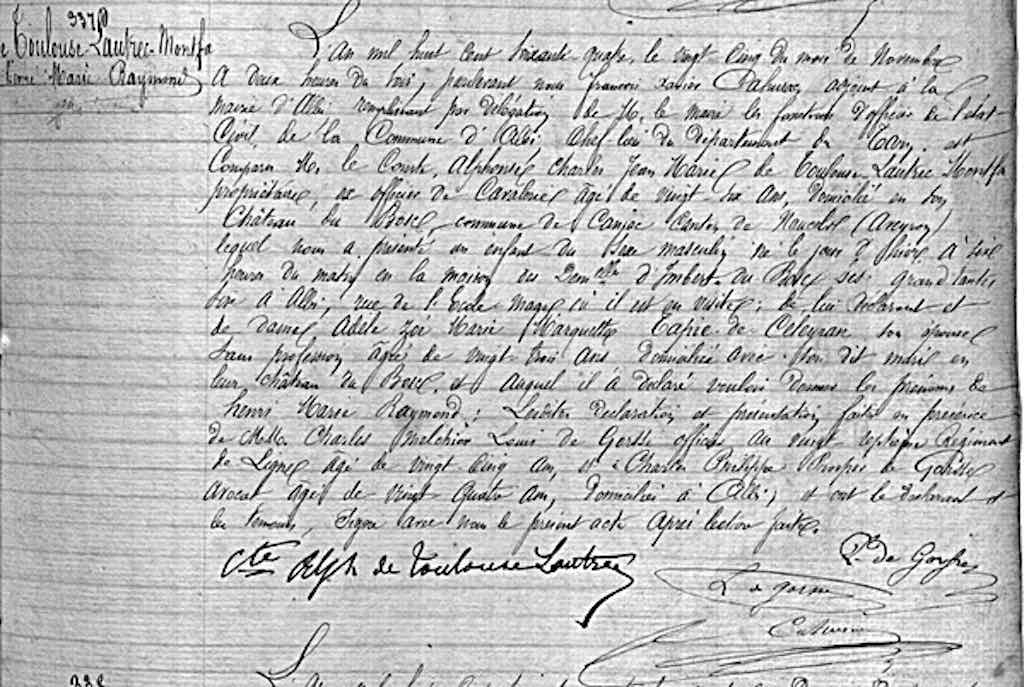 337
de Toulouse Lautrec-Montfa
Henri Marie Raymond
L'an mil huit cent soixante quatre, le vingt cinq du mois de Novembre
à deux heures du soir, pardevant nous françois xavier adjoint à la
mairie d'Albi remplissant par délégation de M. le maire les fonctions d'officier de l'état
Civil de la Commune d'Albi chef-lieu du département du Tarn, est
Comparu M. le Comte, Alphonse Charles Jean Marie de Toulouse Lautrec Montfa
propriétaire, ex officier de Cavalerie âgé de vingt six ans, domicilié en son
Château du Bosc, commune de Camjac Canton de Naucelle (Aveyron)
lequel nous a présenté un enfant du Sexe masculin né le jour d'hier à six
heures du matin en la maison des Dem.elles d'Imbert du Bosc ses grand'tantes
sise à Albi, rue de l'école mage où il est en visite; de lui déclarant et
de dame Adèle Zoé Marie Marquette Tapié de Celeyran son épouse
sans profession âgée de vingt trois ans domiciliée avec son dit mari en
leur château du Bosc, et auquel il a déclaré vouloir donner les prénoms de
henri Marie Raymond; Lesdites déclaration et présentation faites en présence
de M.M. Charles Melchior Louis de Gorsse officier au vingt septième Régiment
de Ligne âgé de vingt cinq ans, et Charles Philippe Prosper de Gorsse
avocat âgé de vingt quatre ans, domiciliés à Albi, et ont le déclarant et
les témoins, signé avec nous le présent acte après lecture faite.
Cte Alph de Toulouse Lautrec
P. de Gorsse
L de gorsse
338